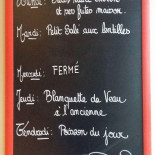 et ses frites maison.
Mardi: Petit Salé aux lentilles
Mercredi: FERMÉ
Jeudi: Blanquette de Veau
à l'ancienne
Vendredi: Poisson du jour